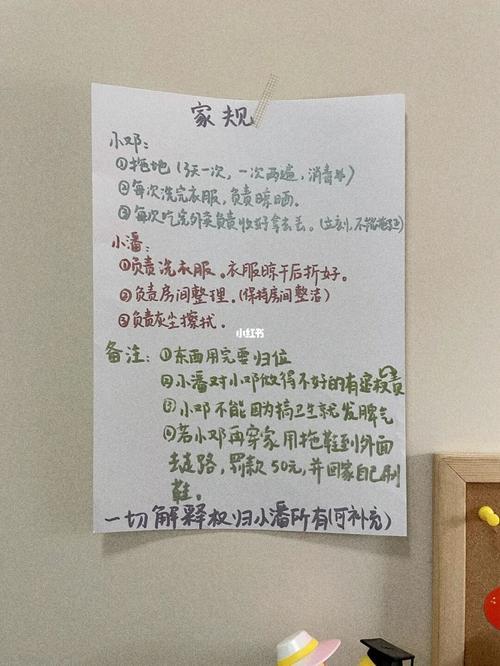 家规
小邓:
①拖地(3天一次,一次两遍,消毒水)
②每次洗完衣服,负责晾晒.
③每次吃完外卖负责收好拿去丢。(立刻,不能拖延)
小潘:
①负责洗衣服。衣服晾干后折好。
②负责房间整理.(保持房间整洁)
③负责灰尘擦拭.
小红书
备注:①东西用完要归位
②小潘对小邓做得不好的有权责
③小邓不能因为搞卫生就发脾气
④若小邓再穿家用拖鞋到外面
去走路,罚款50元,并回家自己刷
鞋。
一切解释权归小潘所有(可补充)